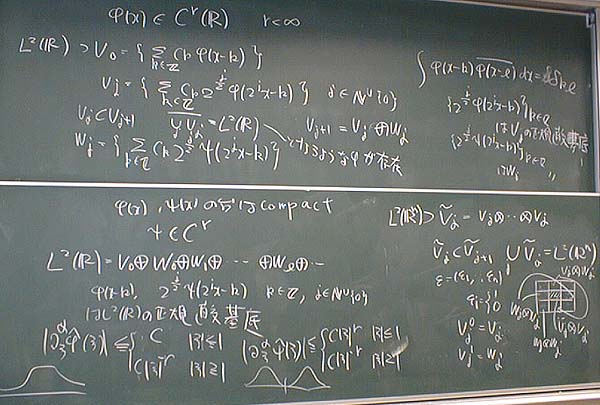 φ(x) ∈ C^r(ℝ) r<∞
L²(ℝ) ⊃ V₀ = { Σ_{k∈ℤ} C_k φ(x-k) }
V_j = { Σ_{k∈ℤ} C_k 2^{j/2} φ(2^j x-k) } j∈ℕ∪{0}
V_j ⊂ V_{j+1} ∪V_j = L²(ℝ) V_{j+1} = V_j ⊕ W_j
W_j = { Σ_{k∈ℤ} C_k 2^{j/2} ψ(2^j x-k) } となるようなφが存在
∫ φ(x-k) φ(x-ℓ) dx = δ_{kℓ}
{2^{j/2} φ(2^j x-k)}_{k∈ℤ}
はV_jの正規直交基底
{2^{j/2} ψ(2^j x-k)}_{k∈ℤ}
はW_j 〃
φ(x), ψ(x)の台は compact
ψ∈C^r
L²(ℝ) = V₀⊕W₀⊕W₁⊕ ⋯ ⊕W_ℓ⊕⋯
φ(x-k), 2^{j/2} ψ(2^j x-k) k∈ℤ, j∈ℕ∪{0}
はL²(ℝ)の正規直交基底
|∂_ξ^α φ̂(ξ)| ≤ { C |ξ|≤1
C|ξ|^{-r} |ξ|≥1
|∂_ξ^α ψ̂(ξ)| ≤ { C|ξ|^r |ξ|≤1
C|ξ|^{-r} |ξ|≥1
L²(ℝⁿ) ⊃ Ṽ_j = V_j⊗⋯⊗V_j
Ṽ_j ⊂ Ṽ_{j+1} ∪Ṽ_j = L²(ℝⁿ)
ε = (ε₁, ⋯, ε_n)
ε_i = { 0
1
V_j^0 = V_j
V_j^1 = W_j
V_j⊗W_j
W_j⊗V_j
W_j⊗W_j
V_j⊗V_j